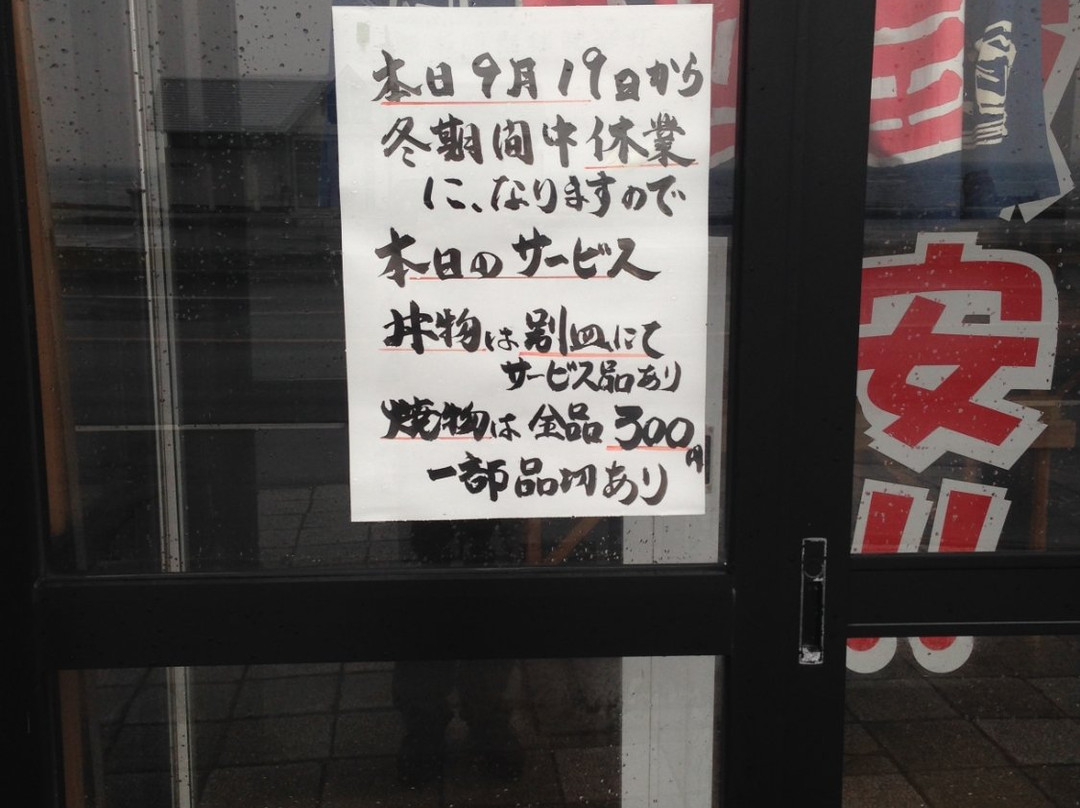 本日9月19日から
冬期間中休業
に、なりますので
本日のサービス
丼物は別皿にて
サービス品あり
焼物は全品300円
一部品切あり
安!!